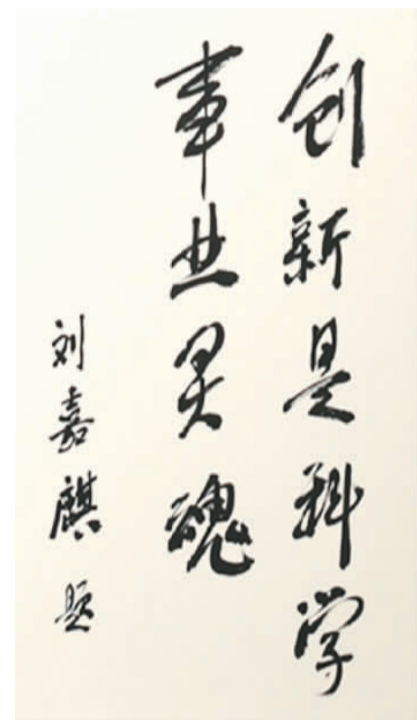 创新是科学
事业灵魂
刘嘉麒 题